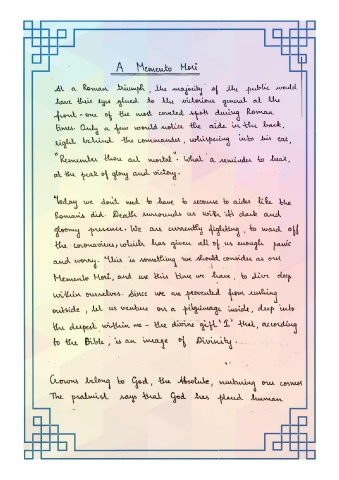 A Memento Mori
At a Roman triumph, the majority of the public would
have their eyes glued to the victorious general at the
front - one of the most coveted spots during Roman
times. Only a few would notice the aide in the back,
right behind the commander, whispering into his ear,
"Remember thou art mortal". What a reminder to hear,
at the peak of glory and victory.
Today we don't need to have to because to aides like the
Romans did. Death surrounds us with it's dark and
gloomy presence. We are currently fighting, to ward off
the coronavirus, which has given all of us enough panic
and worry. This is something we should consider as our
Memento Mori, and use this time we have, to dive deep
within ourselves. Since we are prevented from rushing
outside, let us venture on a pilgrimage inside, deep into
the deepest within me - the divine gift 'I' that, according
to the Bible, is an image of Divinity.
Crowns belong to God, the Absolute, nurturing our
The psalmist says that God has placed human